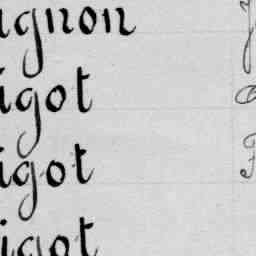 ignon
igot
igot
igot